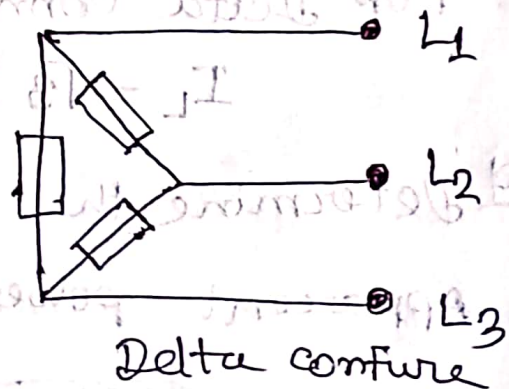 L1
L2
L3
Delta confure